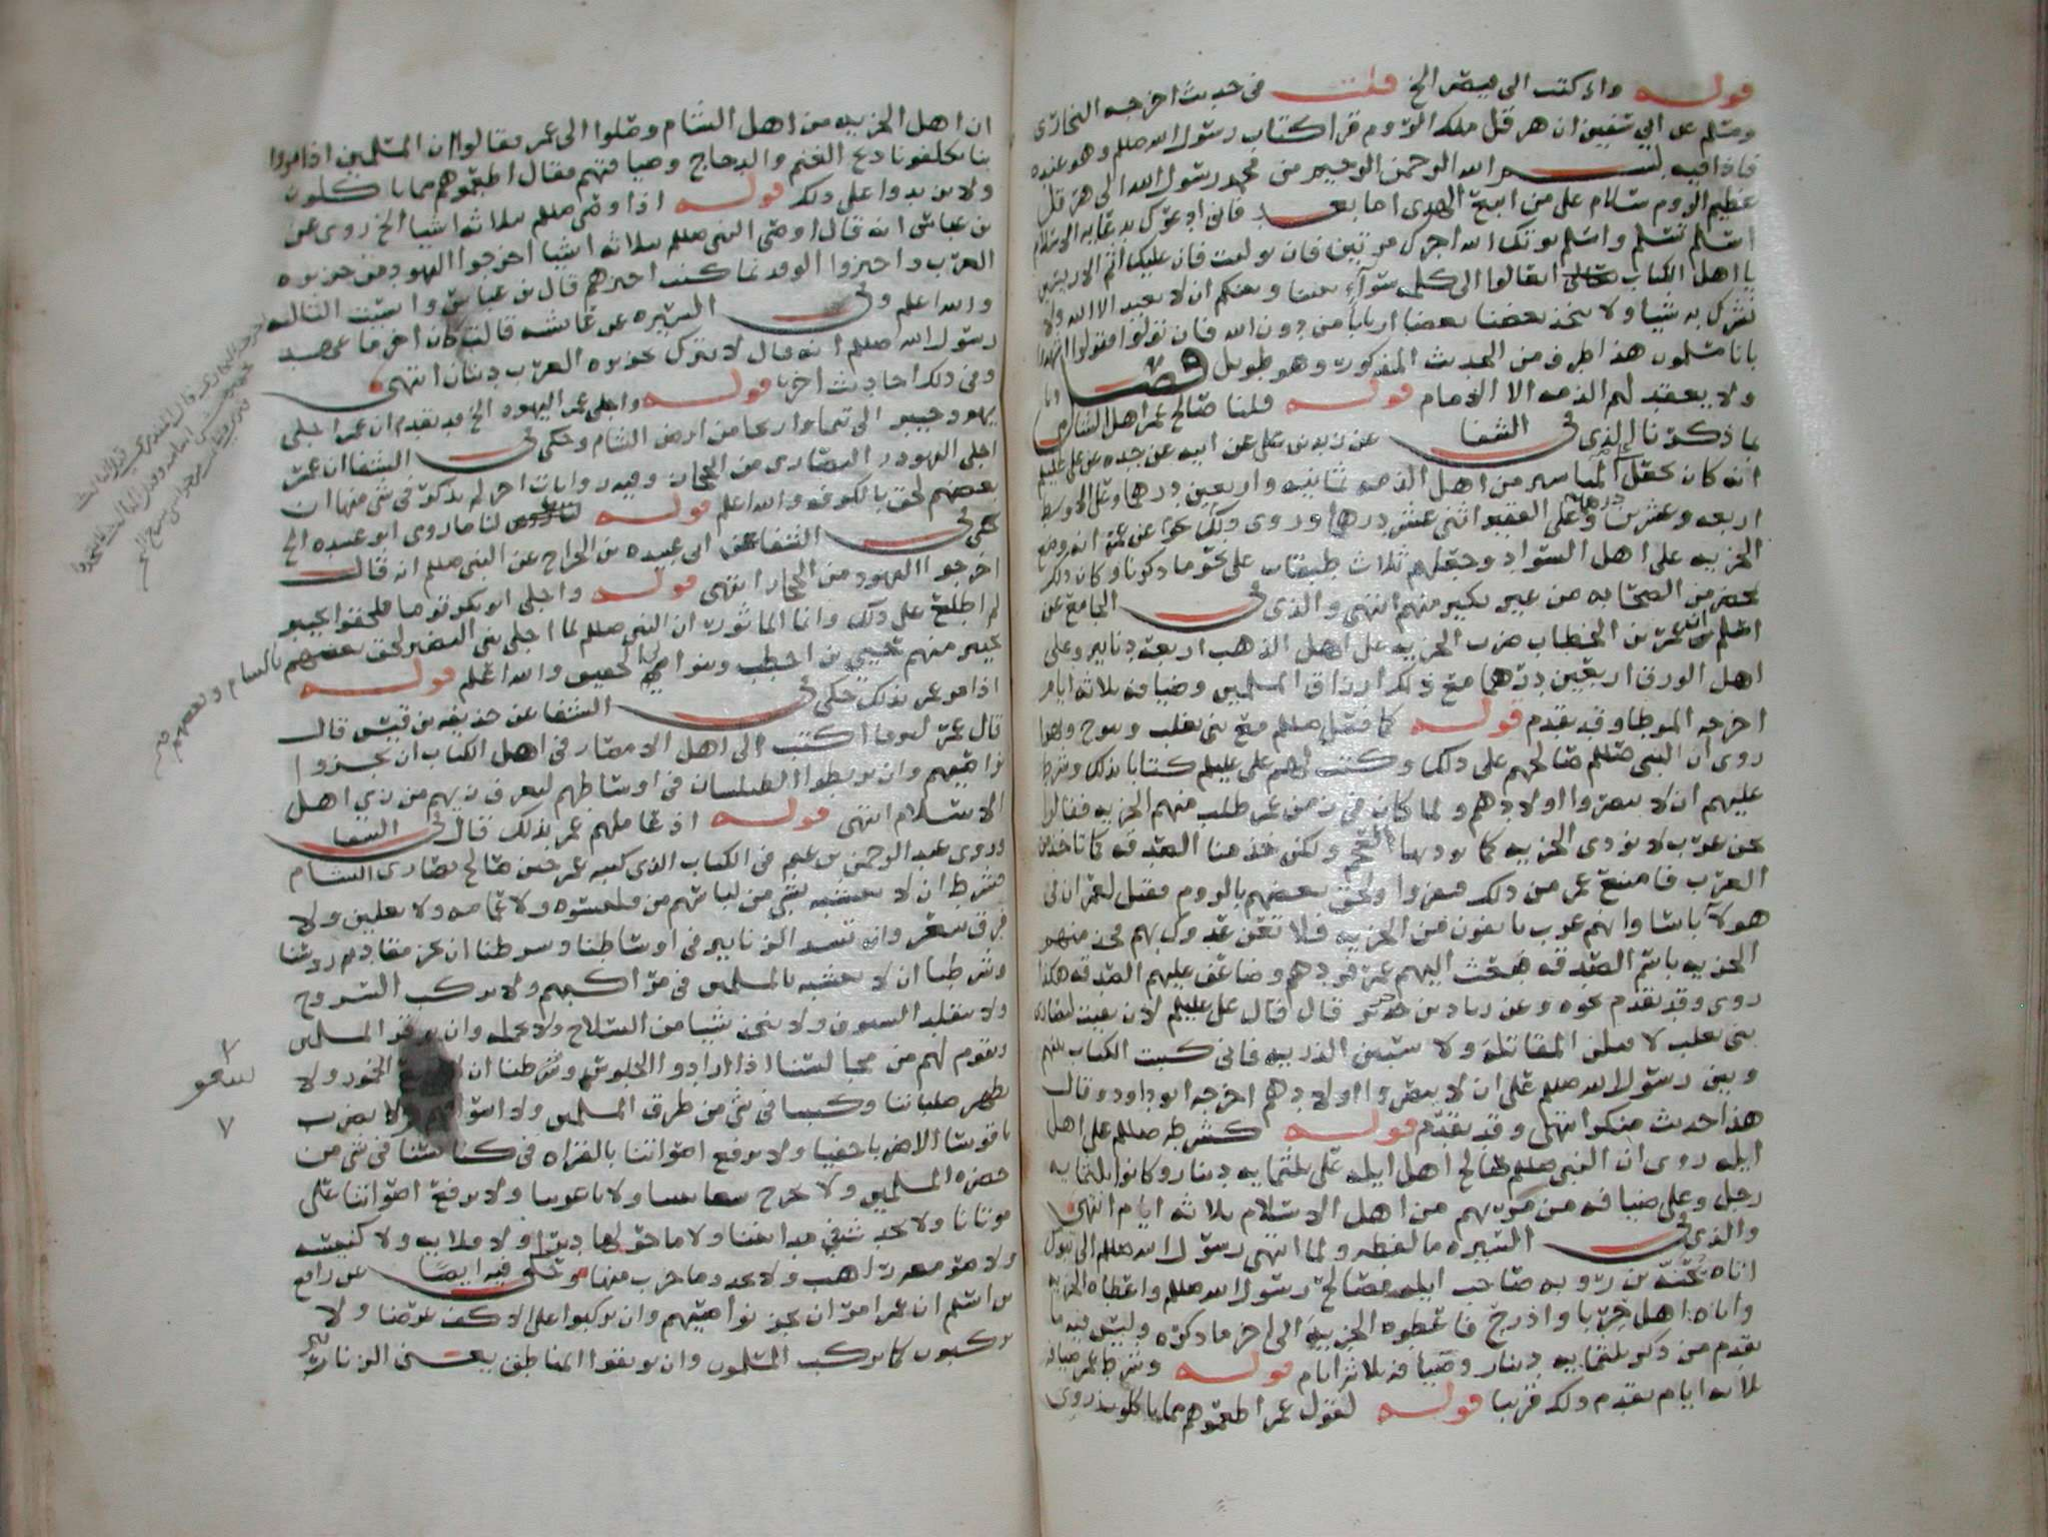 قوله واذ كتب الى قيصر الخ قلت في حديث اخرجه البخاري
ومسلم عن ابي سفين ان هرقل ملك الروم قرا كتاب رسول الله صللم وهو عنده
فاذا فيه بسم الله الرحمن الرحيم من محمد رسول الله الى هرقل
عظيم الروم سلام على من اتبع الهدى اما بعد فاني ادعوك بدعاية الاسلام
اسلم تسلم واسلم يوتك الله اجرك مرتين فان توليت فان عليك اثم الاريسين
يا اهل الكتاب تعالوا الى كلمه سواء بيننا وبينكم ان لا نعبد الا الله ولا
نشرك به شيا ولا يتخذ بعضنا بعضا اربابا من دون الله فان تولوا فقولوا اشهدوا
بانا مسلمون هذا طرف من الحديث المذكور وهو طويل فصل
ولا يعقد لهم الذمه الا الامام قوله قلنا صالح عمر اهل الشام
بما ذكرنا الذي في الشفا عن زيد بن علي عن ابيه عن جده عن علي عليلم
انه كان يجعل على المياسير من اهل الذمه ثمانيه واربعين درهما وعلى الاوسط
اربعه وعشرين درهما وعلى الفقير اثني عشر درهما وروى ذلك عن عمر انه وضع
الجزيه على اهل السواد وجعلهم ثلاث طبقات على نحو ما ذكرنا وكان ذلك
بمحضر من الصحابه من غير نكير منهم انتهى والذي في الجامع عن
اسلم ان عمر بن الخطاب ضرب الجزيه على اهل الذهب اربعة دنانير وعلى
اهل الورق اربعين درهما مع ذلك ارزاق المسلمين وضيافه ثلاثه ايام
اخرجه الموطا وقد تقدم قوله كما فعل صللم مع بني تغلب
روي ان النبي صللم صالحهم على ذلك وكتب لهم علي عليلم كتابا بذلك وشرط
عليهم ان لا ينصروا اولادهم ولما كان في زمن عمر طلب منهم الجزيه فقالوا
نحن عرب لا نودي الجزيه كما يوديها العجم ولكن خذ منا الصدقه كما تاخذ من
العرب فامتنع عمر من ذلك ففروا ولحق بعضهم بالروم فقيل لعمر ان في
هولاء باسا وانهم عرب يانفون من الجزيه فلا تعن عدوك بهم فخذ منهم
الجزيه باسم الصدقه فبعث اليهم عمر فردهم وضاعف عليهم الصدقه هكذا
روي وقد تقدم نحوه وعن زياد بن حدير قال قال علي عليلم لان بقيت لنصارى
بني تغلب لاقتلن المقاتله ولاسبين الذريه فاني كتبت الكتاب بينهم
وبين رسول الله صللم على ان لا ينصروا اولادهم اخرجه ابو داود وقال
هذا حديث منكر انتهى وقد تقدم قوله كشرطه صللم على اهل
ايله روي ان النبي صللم صالح اهل ايله على ثلثمايه دينار وكانوا ثلثمايه
رجل وعلى ضيافه من مر بهم من اهل الاسلام ثلاثه ايام انتهى
والذي في السيره ما لفظه ولما انتهى رسول الله صللم الى تبوك
اتاه يحنه بن روبه صاحب ايله فصالح رسول الله صللم واعطاه الجزيه
واتاه اهل جربا واذرح فاعطوه الجزيه الى اخر ما ذكره وليس فيه ما
تقدم من ذكر ثلثمايه دينار وضيافه ثلاثه ايام قوله وشرط عمر ضيافه
ثلاثه ايام تقدم ذلك قريبا قوله لقول عمر اطعموهم مما ياكلون روي
ان اهل الجزيه من اهل الشام وصلوا الى عمر فقالوا ان المسلمين اذا مروا
بنا يكلفونا ذبح الغنم والدجاج وضيافتهم فقال اطعموهم مما تاكلون
ولا تزيدوا على ذلك قوله اذ اوصى صللم بثلاثه اشيا الخ روي عن
بن عباس انه قال اوصى النبي صللم بثلاثه اشيا اخرجوا اليهود من جزيره
العرب واجيزوا الوفد بما كنت اجيزهم قال بن عباس وانسيت الثالثه
والله اعلم وفي السيره عن عائشه قالت كان اخر ما عهد
رسول الله صللم انه قال لا يترك بجزيره العرب دينان انتهى
وفي ذلك احاديث اخر قوله واجلى عمر اليهود الخ قد تقدم ان عمر اجلى
يهود خيبر الى تيما واريحا من ارض الشام وحكى في الشفا ان عمر
اجلى اليهود والنصارى من الحجاز وفيه روايات اخر لم يذكر في شي منها ان
بعضهم لحق بالكوفه والله اعلم قوله لنا ما روى ابو عبيده الخ
حكى في الشفا عن ابي عبيده بن الجراح عن النبي صللم انه قال
اخرجوا اليهود من الحجاز انتهى قوله واجلى ابو بكر قوما فلحقوا بخيبر
لم اطلع على ذلك وانما الماثور ان النبي صللم لما اجلى بني النضير لحق بعضهم بالشام وبعضهم
بخيبر منهم حيي بن اخطب وبنو ابي الحقيق والله اعلم قوله
اذ امر عمر بذلك حكى في الشفا عن حذيفه بن قيس قال
قال عمر اكتب الى اهل الامصار في اهل الكتاب ان يجزوا
نواصيهم وان يربطوا الطيلسان في اوساطهم ليعرف زيهم من زي اهل
الاسلام انتهى قوله اذ عاملهم عمر بذلك قال في الشفا
وروى عبد الرحمن بن غنم في الكتاب الذي كتبه عمر حين صالح نصارى الشام
فشرط ان لا نتشبه بشي من لباسهم من قلنسوه ولا عمامه ولا نعلين ولا
فرق شعر وان نشد الزنانير في اوساطنا وشرطنا ان نجز مقادم روسنا
وشرطنا ان لا نتشبه بالمسلمين في مراكبهم ولا نركب السروج
ولا نتقلد السيوف ولا نتخذ شيا من السلاح ولا نحمله وان نوقر المسلمين
ونقوم لهم من مجالسنا اذا ارادوا الجلوس وشرطنا ان الخمور ولا
نظهر صلباننا وكتبنا في شي من طرق المسلمين ولا اسواقهم ولا نضرب
ناقوسنا الا ضربا خفيا ولا نرفع اصواتنا بالقراه في كنائسنا في شي من
حضره المسلمين ولا نخرج شعانينا ولا باعوثنا ولا نرفع اصواتنا على
موتانا ولا نحدث في مدائننا ولا ما حولها ديرا ولا قلايه ولا كنيسه
ولا صومعه راهب ولا نجدد ما خرب منها وحكى فيه ايضا عن نافع
عن اسلم ان عمر امر ان تجز نواصيهم وان يركبوا على الاكف عرضا ولا
يركبون كما يركب المسلمون وان يوثقوا المناطق يعني الزنانير